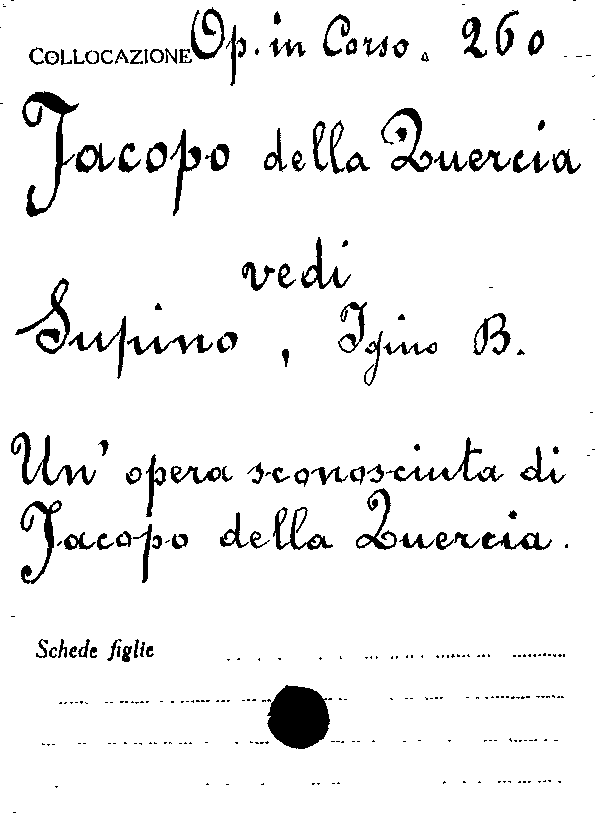 COLLOCAZIONE Op. in Corso. 260
Jacopo della Quercia
vedi
Supino, Igino B.
Un' opera sconosciuta di
Jacopo della Quercia.
Schede figlie